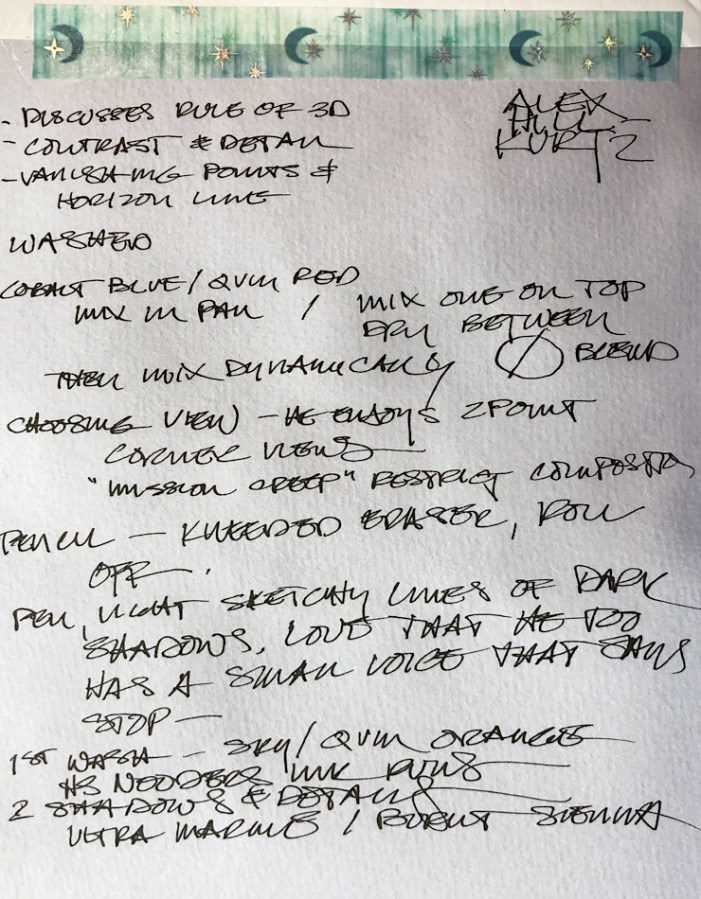 - DISCUSSES RULE OF 3D
- CONTRAST & DETAIL
- VANISHING POINTS &
HORIZON LINE
ALEX
HILL
KURTZ
WASHED
COBALT BLUE / QUIN RED
MIX IN PAN / MIX ONE ON TOP
DRY BETWEEN
THEN MIX DYNAMICALLY BLEND
CHOOSING VIEW - HE ENJOYS 2 POINT
CORNER VIEWS
"MISSION CREEP" RESTRICT
PENCIL - KNEEDED ERASER, ROLL
OFF.
PEN, LIGHT SKETCHY LINES OF DARK
SHADOWS. LOVE THAT HE TOO
HAS A SMALL VOICE THAT SAYS
STOP -
1ST WASH - SKY / QUIN ORANGE
AS NEEDED / INK RUNS
2 SHADOWS & DETAILS
ULTRA MARINE / BURNT SIENNA